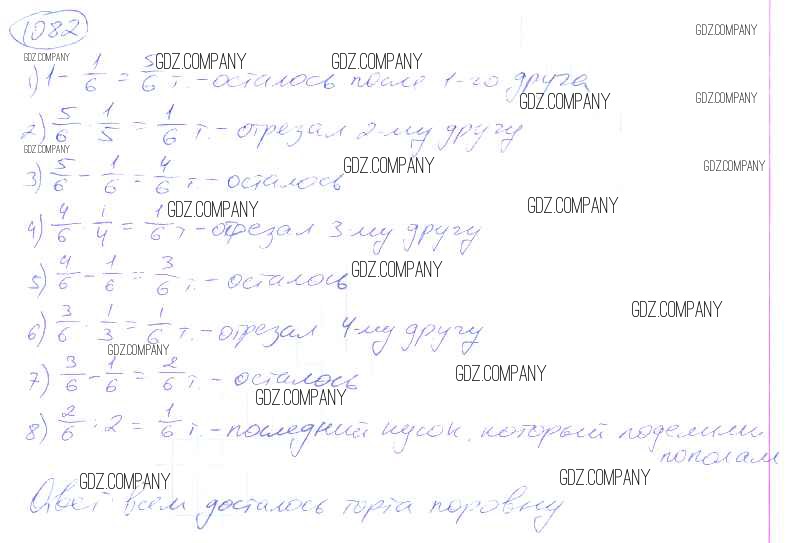 1082
GDZ.COMPANY
GDZ.COMPANY GDZ.COMPANY GDZ.COMPANY
1) 1 - 1/6 = 5/6 т. - осталось после 1-го друга
GDZ.COMPANY GDZ.COMPANY
2) 5/6 · 1/5 = 1/6 т. - отрезал 2-му другу
GDZ.COMPANY GDZ.COMPANY GDZ.COMPANY
3) 5/6 - 1/6 = 4/6 т. - осталось
GDZ.COMPANY GDZ.COMPANY
4) 4/6 · 1/4 = 1/6 т - отрезал 3-му другу
GDZ.COMPANY
5) 4/6 - 1/6 = 3/6 т. - осталось
GDZ.COMPANY
6) 3/6 · 1/3 = 1/6 т. - отрезал 4-му другу
GDZ.COMPANY
7) 3/6 - 1/6 = 2/6 т. - осталось
GDZ.COMPANY
GDZ.COMPANY
8) 2/6 : 2 = 1/6 т. - последний кусок, который поделили
пополам
GDZ.COMPANY GDZ.COMPANY
Ответ: всем досталось торта поровну